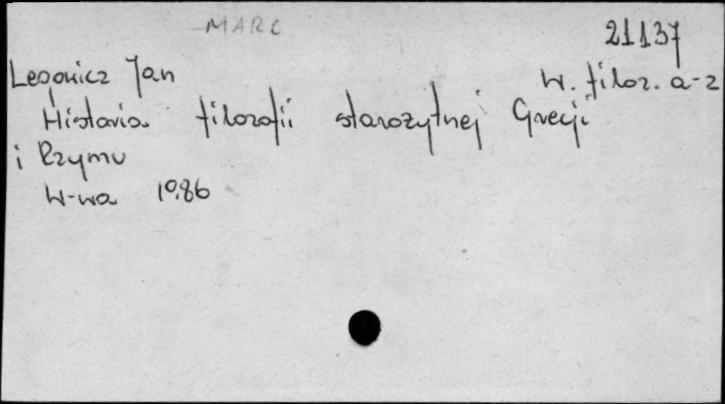 MARC
21137
Legowicz Jan
W. filoz. a-z
Historia filozofii starożytnej Grecji
i Rzymu
W-wa 1986